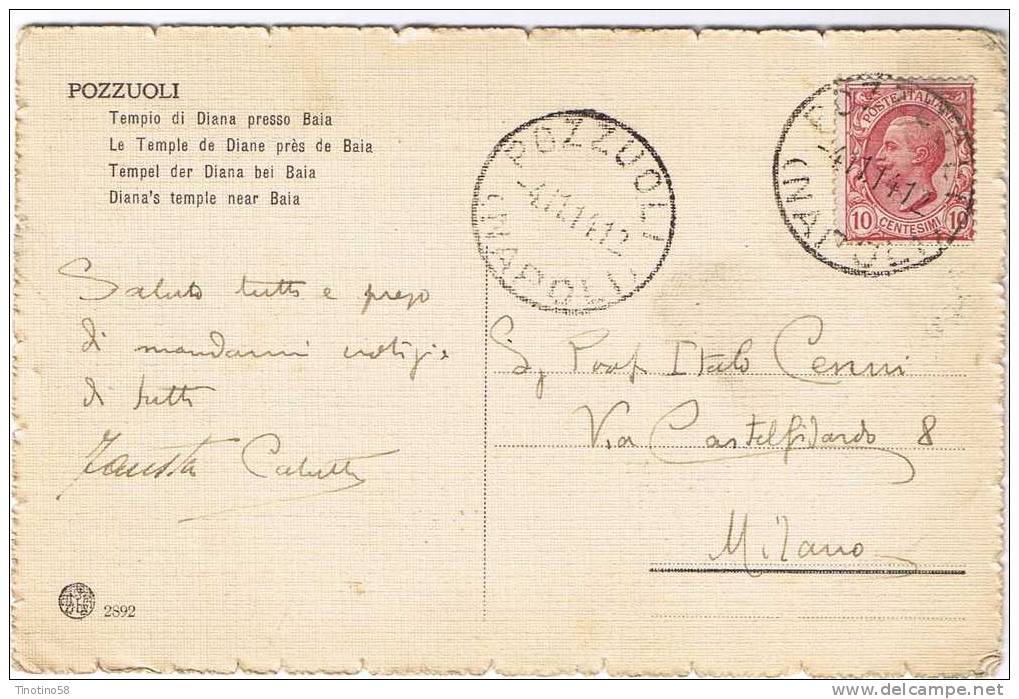 POZZUOLI
Tempio di Diana presso Baia
Le Temple de Diane près de Baia
Tempel der Diana bei Baia
Diana's temple near Baia
POZZUOLI
(NAPOLI)
POSTE ITALIANE
10 CENTESIMI 10
Saluto tutti e prego
di mandarmi notizie
di tutti
Fausta
Prof Italo Cenni
Via Castelfidardo 8
Milano
2892
Tinotino58
www.delcampe.net